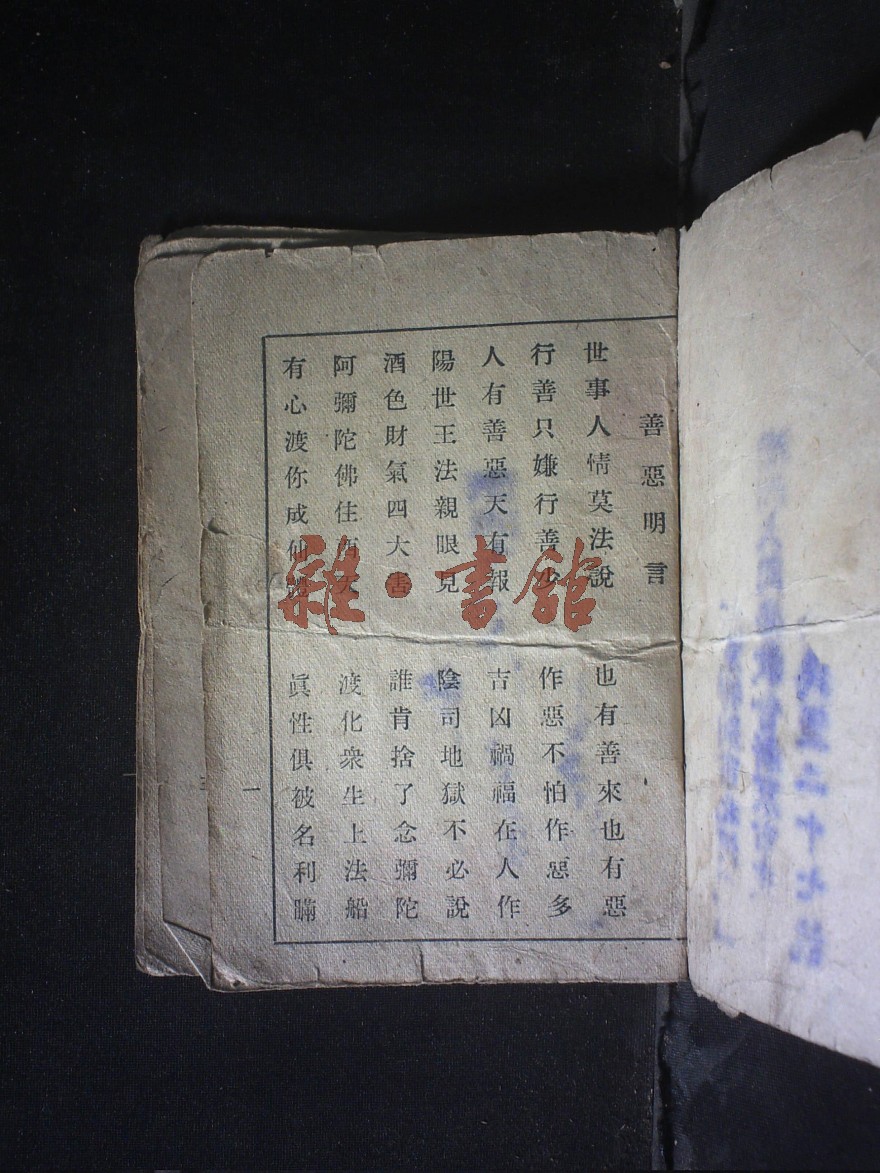 善惡明言
世事人情莫法說 也有善來也有惡
行善只嫌行善少 作惡不怕作惡多
人有善惡天有報 吉凶禍福在人作
陽世王法親眼見 陰司地獄不必說
酒色財氣四大害 誰肯捨了念彌陀
阿彌陀佛住西天 渡化衆生上法船
有心渡你成仙體 眞性俱被名利瞞
一
雜·書館